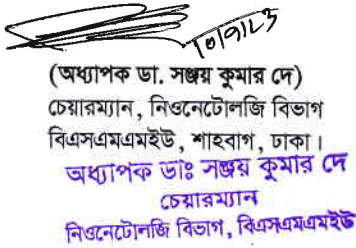 ১০/৭/২৩
(অধ্যাপক ডা. সঞ্জয় কুমার দে)
চেয়ারম্যান, নিওনেটোলজি বিভাগ
বিএসএমএমইউ, শাহবাগ, ঢাকা।
অধ্যাপক ডাঃ সঞ্জয় কুমার দে
চেয়ারম্যান
নিওনেটোলজি বিভাগ, বিএসএমএমইউ